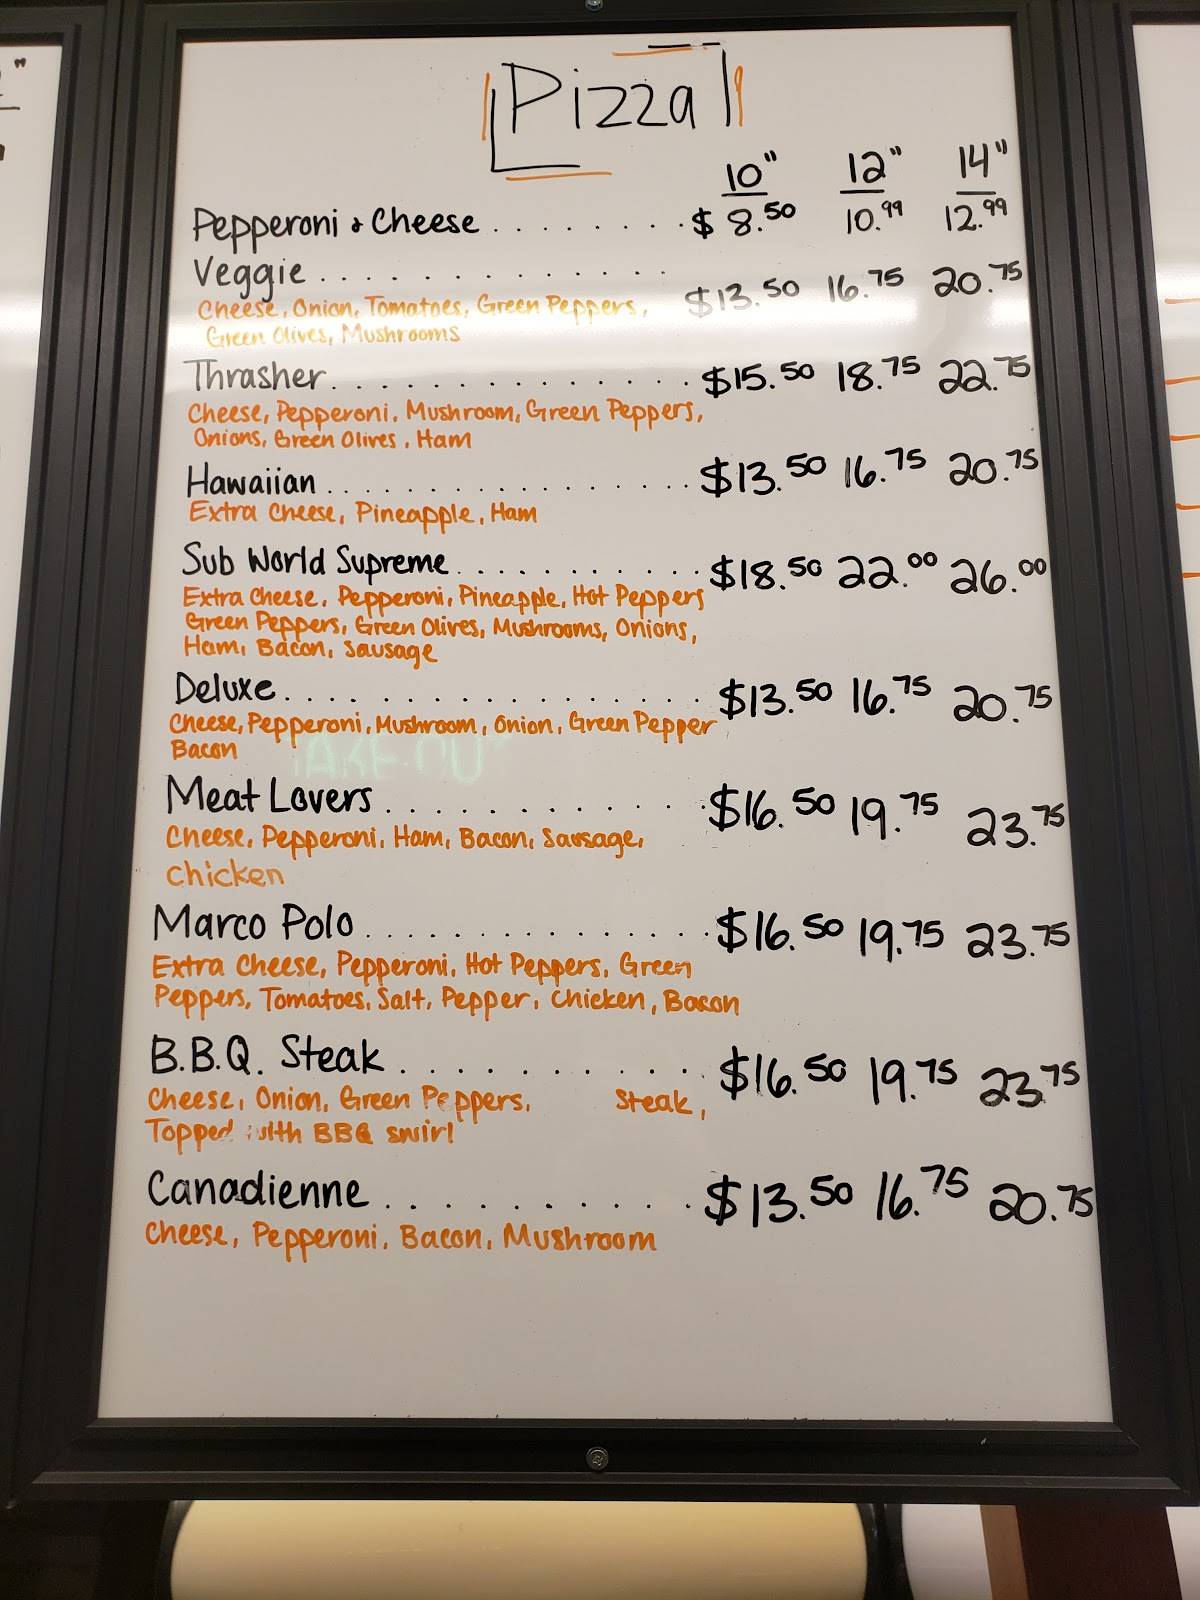 Pizza
10" 12" 14"
Pepperoni & Cheese ........ $8.50 10.99 12.99
Veggie ............. $13.50 16.75 20.75
Cheese, Onion, Tomatoes, Green Peppers,
Green Olives, Mushrooms
Thrasher ............... $15.50 18.75 22.75
Cheese, Pepperoni, Mushroom, Green Peppers,
Onions, Green Olives, Ham
Hawaiian ................. $13.50 16.75 20.75
Extra Cheese, Pineapple, Ham
Sub World Supreme ........... $18.50 22.00 26.00
Extra Cheese, Pepperoni, Pineapple, Hot Peppers
Green Peppers, Green Olives, Mushrooms, Onions,
Ham, Bacon, Sausage
Deluxe .................. $13.50 16.75 20.75
Cheese, Pepperoni, Mushroom, Onion, Green Pepper
Bacon
TAKE-OUT
Meat Lovers ............ $16.50 19.75 23.75
Cheese, Pepperoni, Ham, Bacon, Sausage,
Chicken
Marco Polo ............... $16.50 19.75 23.75
Extra Cheese, Pepperoni, Hot Peppers, Green
Peppers, Tomatoes, Salt, Pepper, Chicken, Bacon
B.B.Q. Steak ............ $16.50 19.75 23.75
Cheese, Onion, Green Peppers, Steak,
Topped with BBQ swirl
Canadienne ........... $13.50 16.75 20.75
Cheese, Pepperoni, Bacon, Mushroom